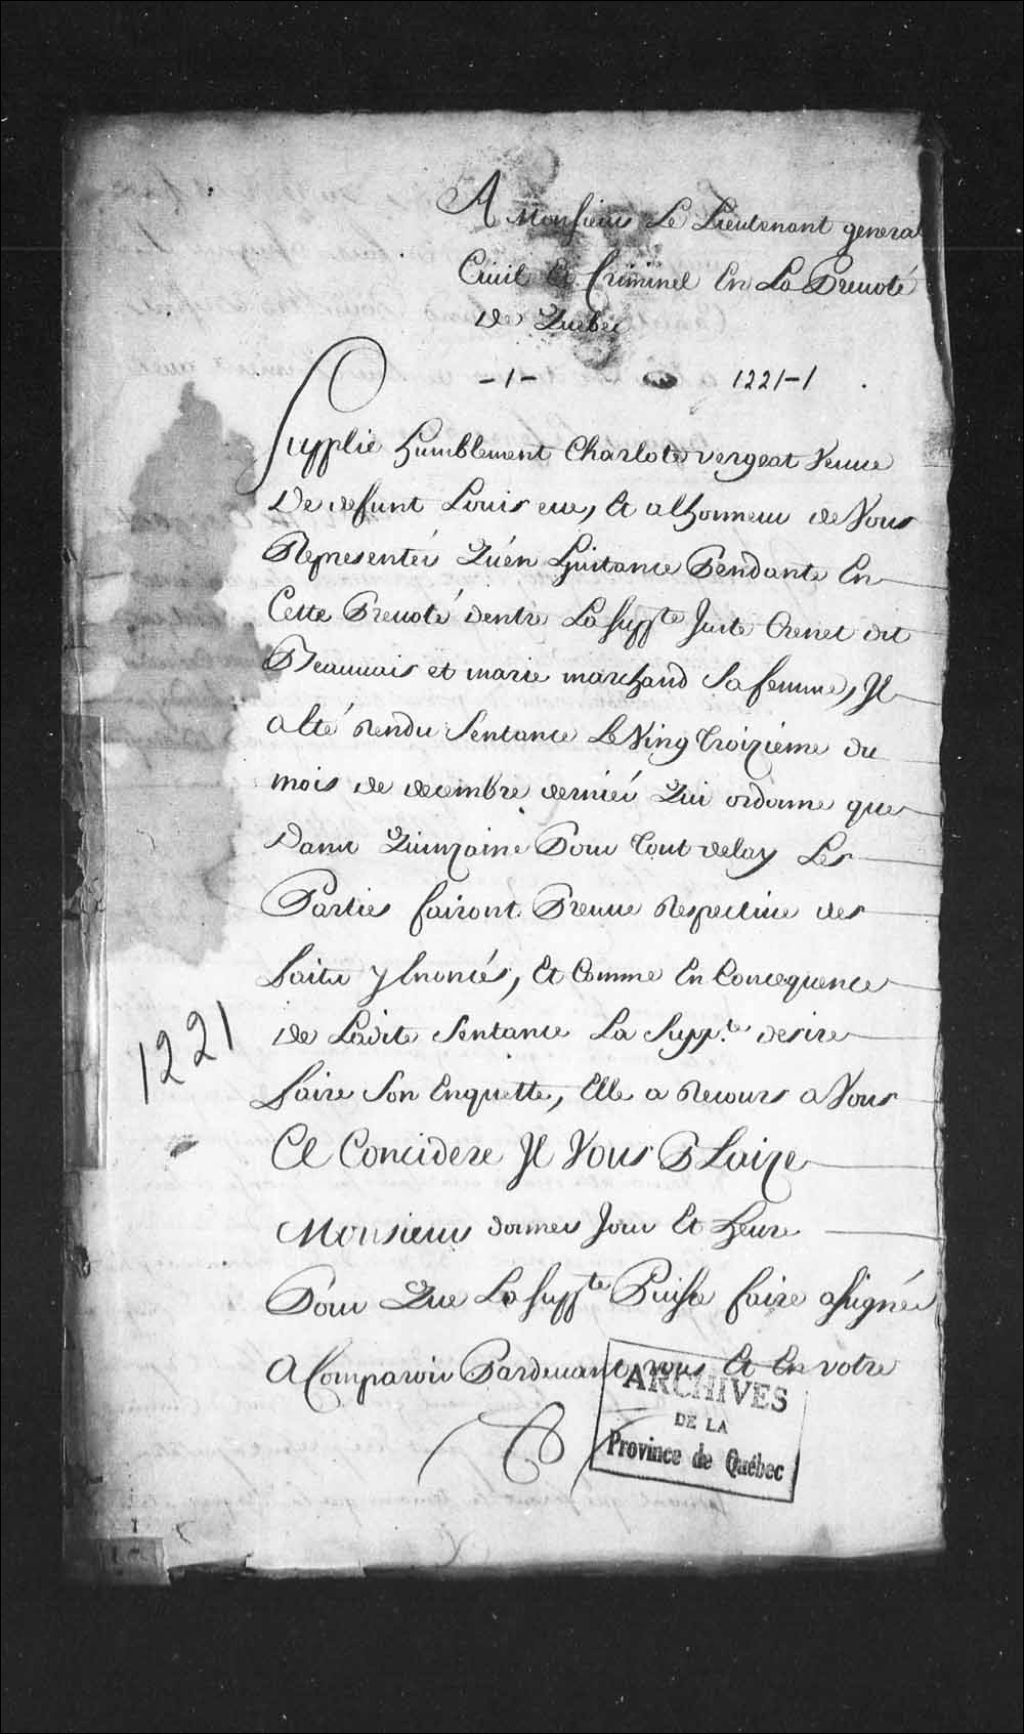 A Monsieur Le Lieutenant general
Ciuil Et Criminel En La Preuoté
De Quebec
-1- 1221-1
Supplie humblement Charlote vergeat Veuue
De defunt Louis eue, Et a lhonneur de Vous
Representér Quén Linstance Pendante En
Cette Preuoté dentre La Suppte Juste Chenet dit
Beauuais et marie marchand Sa femme, Jl
a Eté Rendu Sentance Le Ving troizieme du
mois de decembre derniér Qui ordonne que
Dans Quinzaine Pour tout delay Les
Parties fairont Preuue Respectiue des
faits y Enoncés, Et Comme En Concequence
de Ladite Sentance La Supp.te desire
faire Son Enquette, Elle a Recours a Vous
Ce Concidere Jl Vous Plaize
Monsieur donner Jour Et heure
Pour Que La Suppte Puisse faire assignér
A Comparoir Pardeuant vous Et En votre
1221
ARCHIVES
DE LA
Province de Québec